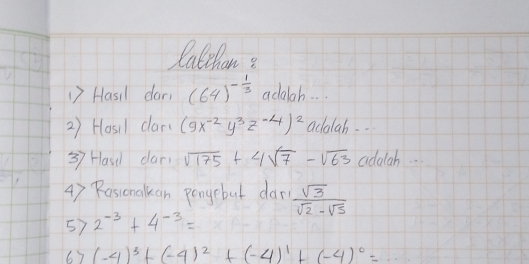 Latihan :
1) Hasil dari (64)^{-1/3} adalah...
2) Hasil dari (9x^{-2} y^3 z^{-4})^2 adalah...
3) Hasil dari √175 + 4√7 - √63 adalah...
4) Rasionalkan penyebut dari √3/(√2 - √5)
5) 2^{-3} + 4^{-3} =
6) (-4)^3 + (-4)^2 + (-4)^1 + (-4)^0 = ...